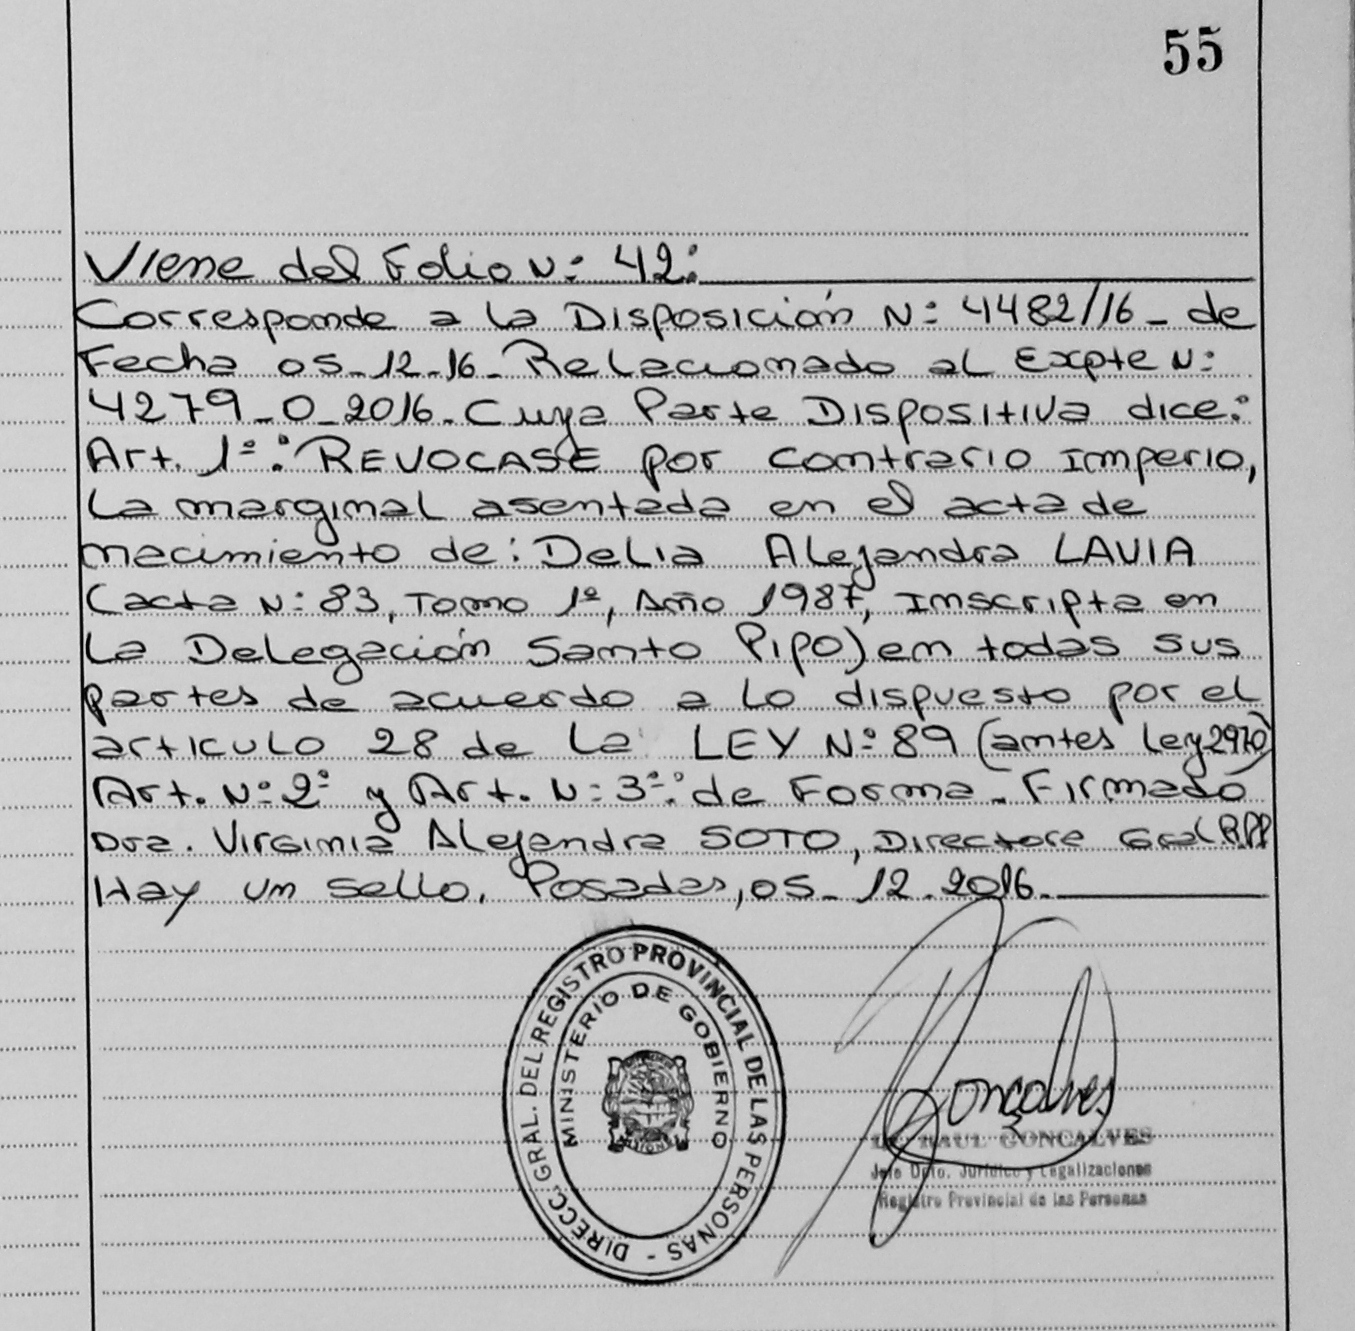 55
Viene del Folio N: 42:
Corresponde a la Disposición N: 4482/16 - de
Fecha 05-12-16- Relacionado al Expte N:
4279-0-2016- Cuya Parte Dispositiva dice:
Art. 1º: REVOCASE por contrario Imperio,
La marginal asentada en el acta de
nacimiento de: Delia Alejandra LAVIA
(acta N: 83, Tomo 1º, Año 1987, Inscripta en
La Delegación Santo Pipo) en todas sus
partes de acuerdo a lo dispuesto por el
articulo 28 de la LEY Nº 89 (antes ley 2970)
Art. Nº 2º y Art. N: 3º: de Forma - Firmado
Dra. Virginia Alejandra SOTO, Directora Gral R.P.P
Hay un sello. Posadas, 05-12-2016.
DIRECC. GRAL. DEL REGISTRO PROVINCIAL DE LAS PERSONAS -
MINISTERIO DE GOBIERNO
Gonçalves
RAUL GONCALVES
Jefe Dpto. Jurídico y Legalizaciones
Registro Provincial de las Personas